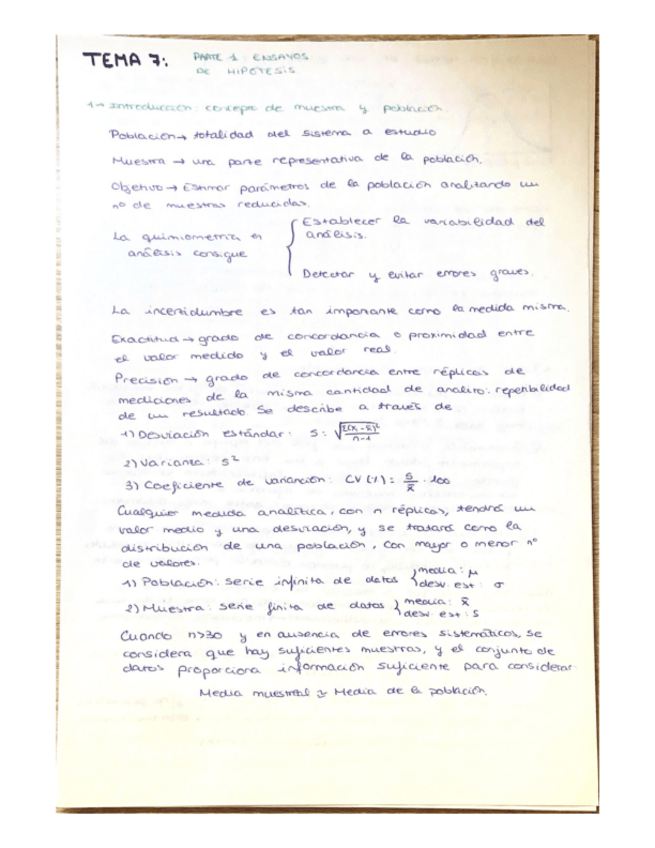 TEMA 7: PARTE 1: ENSAYOS
DE HIPÓTESIS
1→ Introducción: concepto de muestra y población.
Población → totalidad del sistema a estudio
Muestra → una parte representativa de la población.
Objetivo → Estimar parámetros de la población analizando un
nº de muestras reducidas.
La quimiometría en
análisis consigue
{ Establecer la variabilidad del
análisis.
Detectar y evitar errores graves.
La incertidumbre es tan importante como la medida misma.
Exactitud → grado de concordancia o proximidad entre
el valor medido y el valor real.
Precisión → grado de concordancia entre réplicas de
mediciones de la misma cantidad de analito: repetibilidad
de un resultado. Se describe a través de
1) Desviación estándar: S = √(Σ(xᵢ - x̄)²/(n-1))
2) Varianza: s²
3) Coeficiente de variación: CV (%) = s/x̄ · 100
Cualquier medida analítica, con n réplicas, tendrá un
valor medio y una desviación, y se tratará como la
distribución de una población, con mayor o menor nº
de valores.
1) Población: serie infinita de datos { media: μ
desv. est: σ
2) Muestra: serie finita de datos { media: x̄
desv. est: s
Cuando n>30 y en ausencia de errores sistemáticos, se
considera que hay suficientes muestras, y el conjunto de
datos proporciona información suficiente para considerar:
Media muestral ≈ Media de la población.